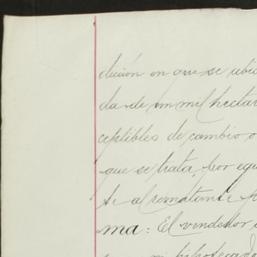 dición en que se ubi
da de un mil hectar
ceptibles de cambio o
que se trata, por equ
te al rematante
ma: El vendedor
hipotecado